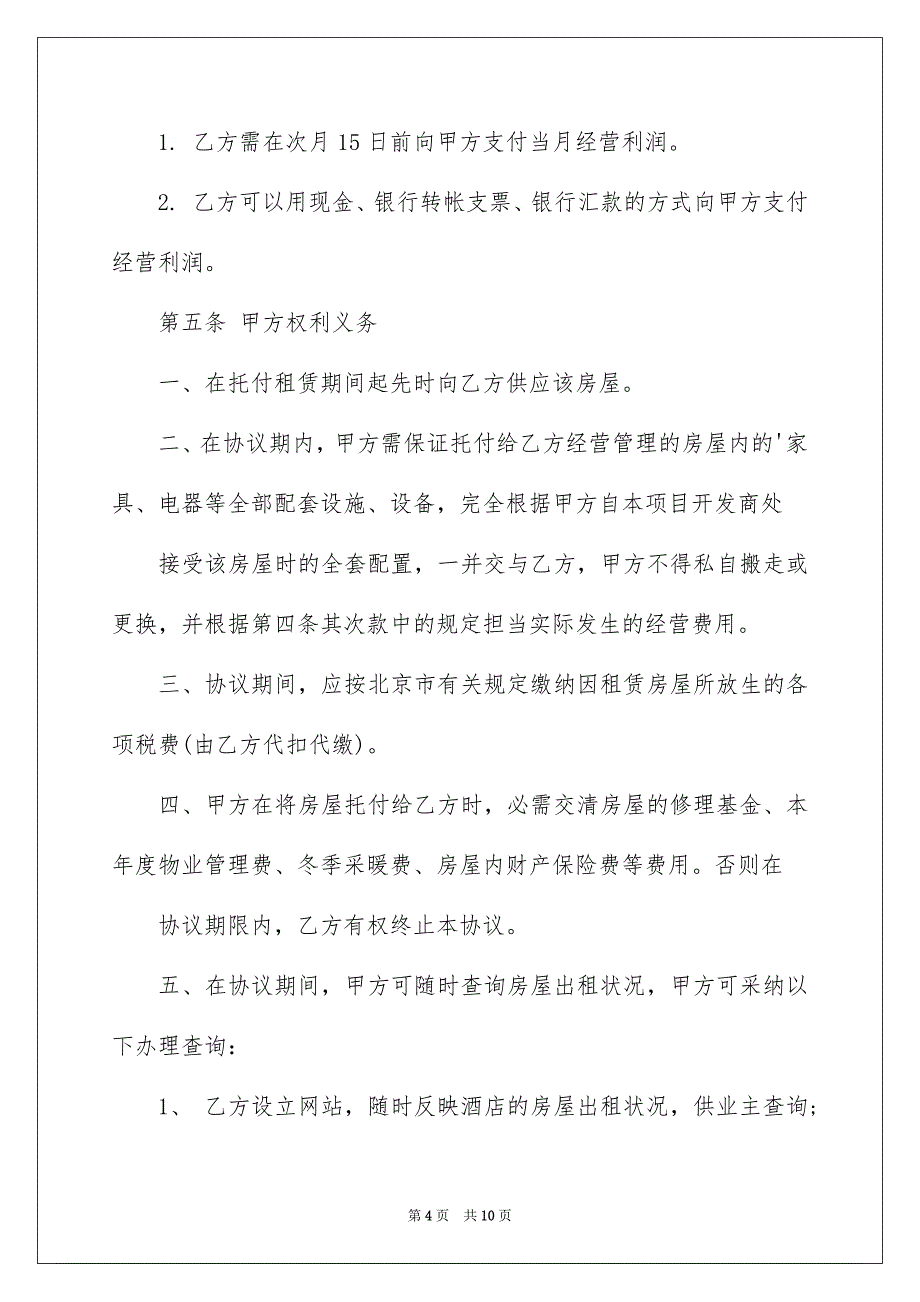 1. 乙方需在次月 15 日前向甲方支付当月经营利润。
2. 乙方可以用现金、银行转帐支票、银行汇款的方式向甲方支付
经营利润。
第五条 甲方权利义务
一、在托付租赁期间起先时向乙方供应该房屋。
二、在协议期内，甲方需保证托付给乙方经营管理的房屋内的'家
具、电器等全部配套设施、设备，完全根据甲方自本项目开发商处
接受该房屋时的全套配置，一并交与乙方，甲方不得私自搬走或
更换，并根据第四条其次款中的规定担当实际发生的经营费用。
三、协议期间，应按北京市有关规定缴纳因租赁房屋所放生的各
项税费(由乙方代扣代缴)。
四、甲方在将房屋托付给乙方时，必需交清房屋的修理基金、本
年度物业管理费、冬季采暖费、房屋内财产保险费等费用。否则在
协议期限内，乙方有权终止本协议。
五、在协议期间，甲方可随时查询房屋出租状况，甲方可采纳以
下办理查询：
1、 乙方设立网站，随时反映酒店的房屋出租状况，供业主查询;
第 4 页 共 10 页